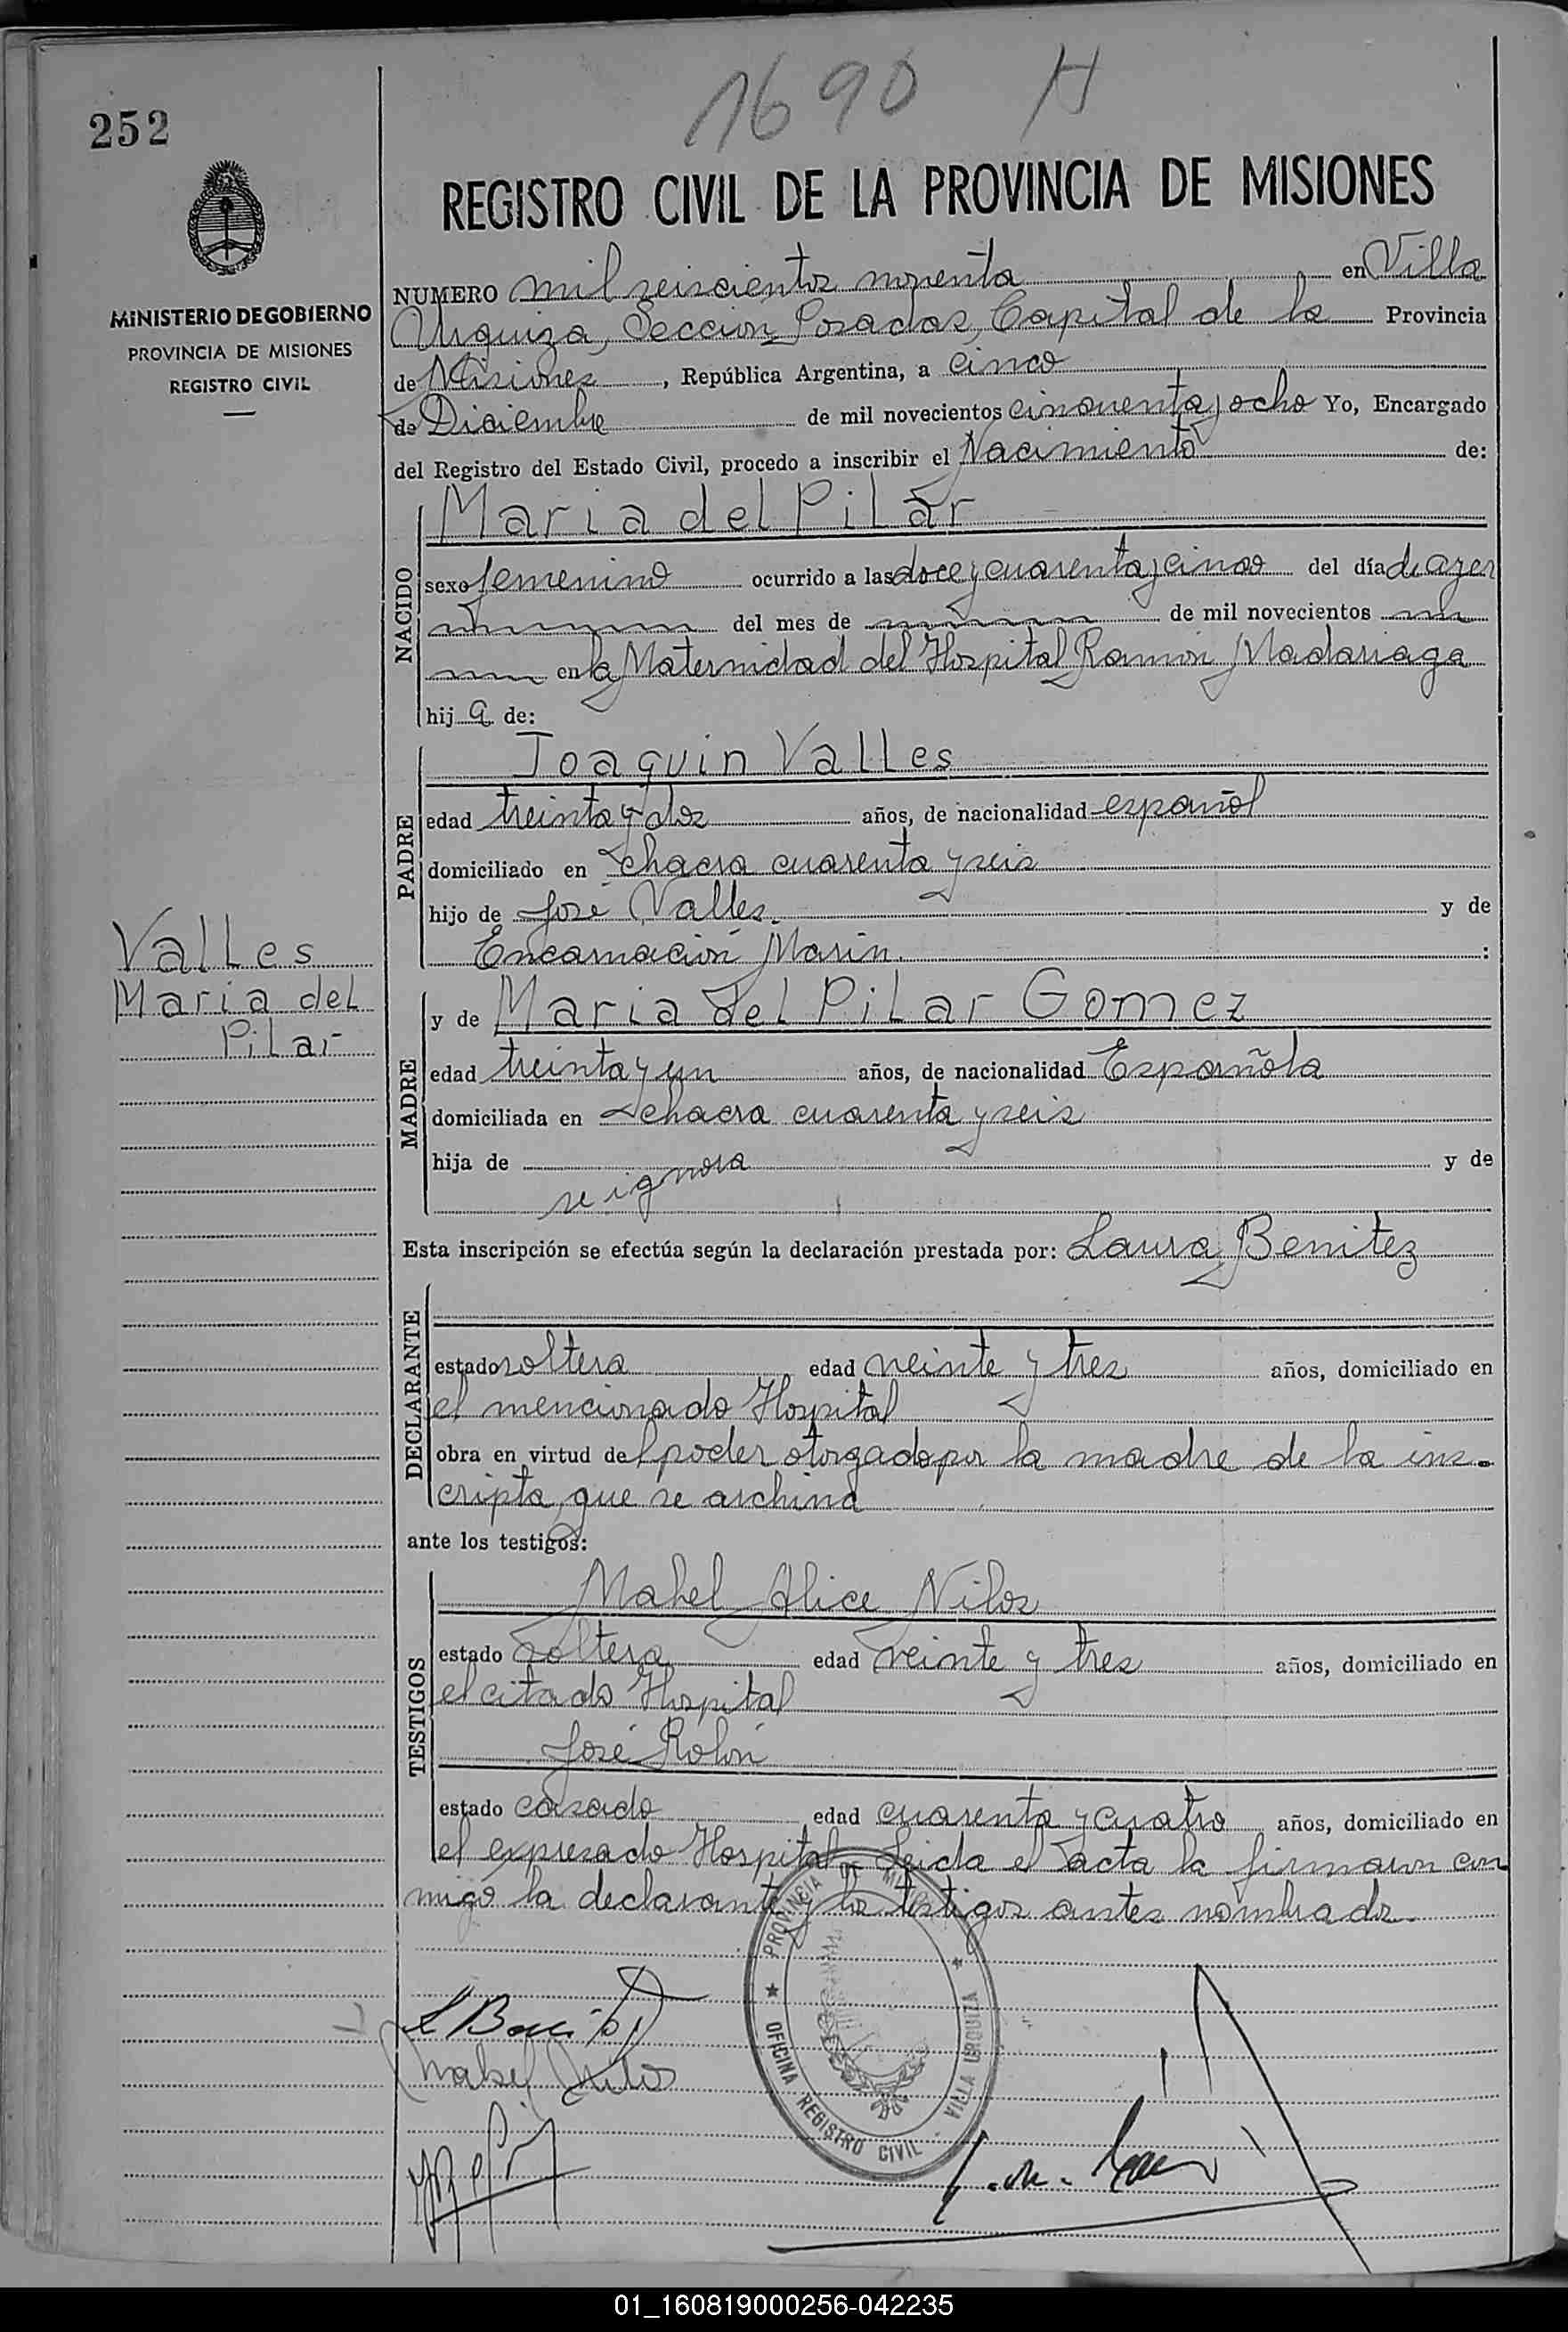 1690 H
252
REGISTRO CIVIL DE LA PROVINCIA DE MISIONES
MINISTERIO DE GOBIERNO
PROVINCIA DE MISIONES
REGISTRO CIVIL
NUMERO mil seiscientos noventa en Villa
Urquiza, Sección Posadas, Capital de la Provincia
de Misiones, República Argentina, a cinco
de Diciembre de mil novecientos cincuenta y ocho Yo, Encargado
del Registro del Estado Civil, procedo a inscribir el Nacimiento de:
NACIDO
Maria del Pilar
sexo femenino ocurrido a las doce y cuarenta y cinco del día de ayer
del mes de de mil novecientos
en la Maternidad del Hospital Ramón Madariaga
hija de:
PADRE
Joaquin Valles
edad treinta y dos años, de nacionalidad español
domiciliado en chacra cuarenta y seis
hijo de José Valles. y de
Encarnación Marin. :
Valles
Maria del
Pilar
MADRE
y de Maria del Pilar Gomez
edad treinta y un años, de nacionalidad Española
domiciliada en chacra cuarenta y seis
hija de se ignora y de
Esta inscripción se efectúa según la declaración prestada por: Laura Benitez
DECLARANTE
estado soltera edad veinte y tres años, domiciliado en
el mencionado Hospital
obra en virtud del poder otorgado por la madre de la ins-
cripta, que se archiva
ante los testigos:
TESTIGOS
Mabel Alice Nilos
estado soltera edad veinte y tres años, domiciliado en
el citado Hospital
José Rolón
estado casado edad cuarenta y cuatro años, domiciliado en
el expresado Hospital. Leida el acta la firmaron con
migo la declarante y los testigos antes nombrados.
PROVINCIA DE MISIONES
OFICINA REGISTRO CIVIL - VILLA URQUIZA
L Benitez
Mabel Nilos
01_160819000256-042235